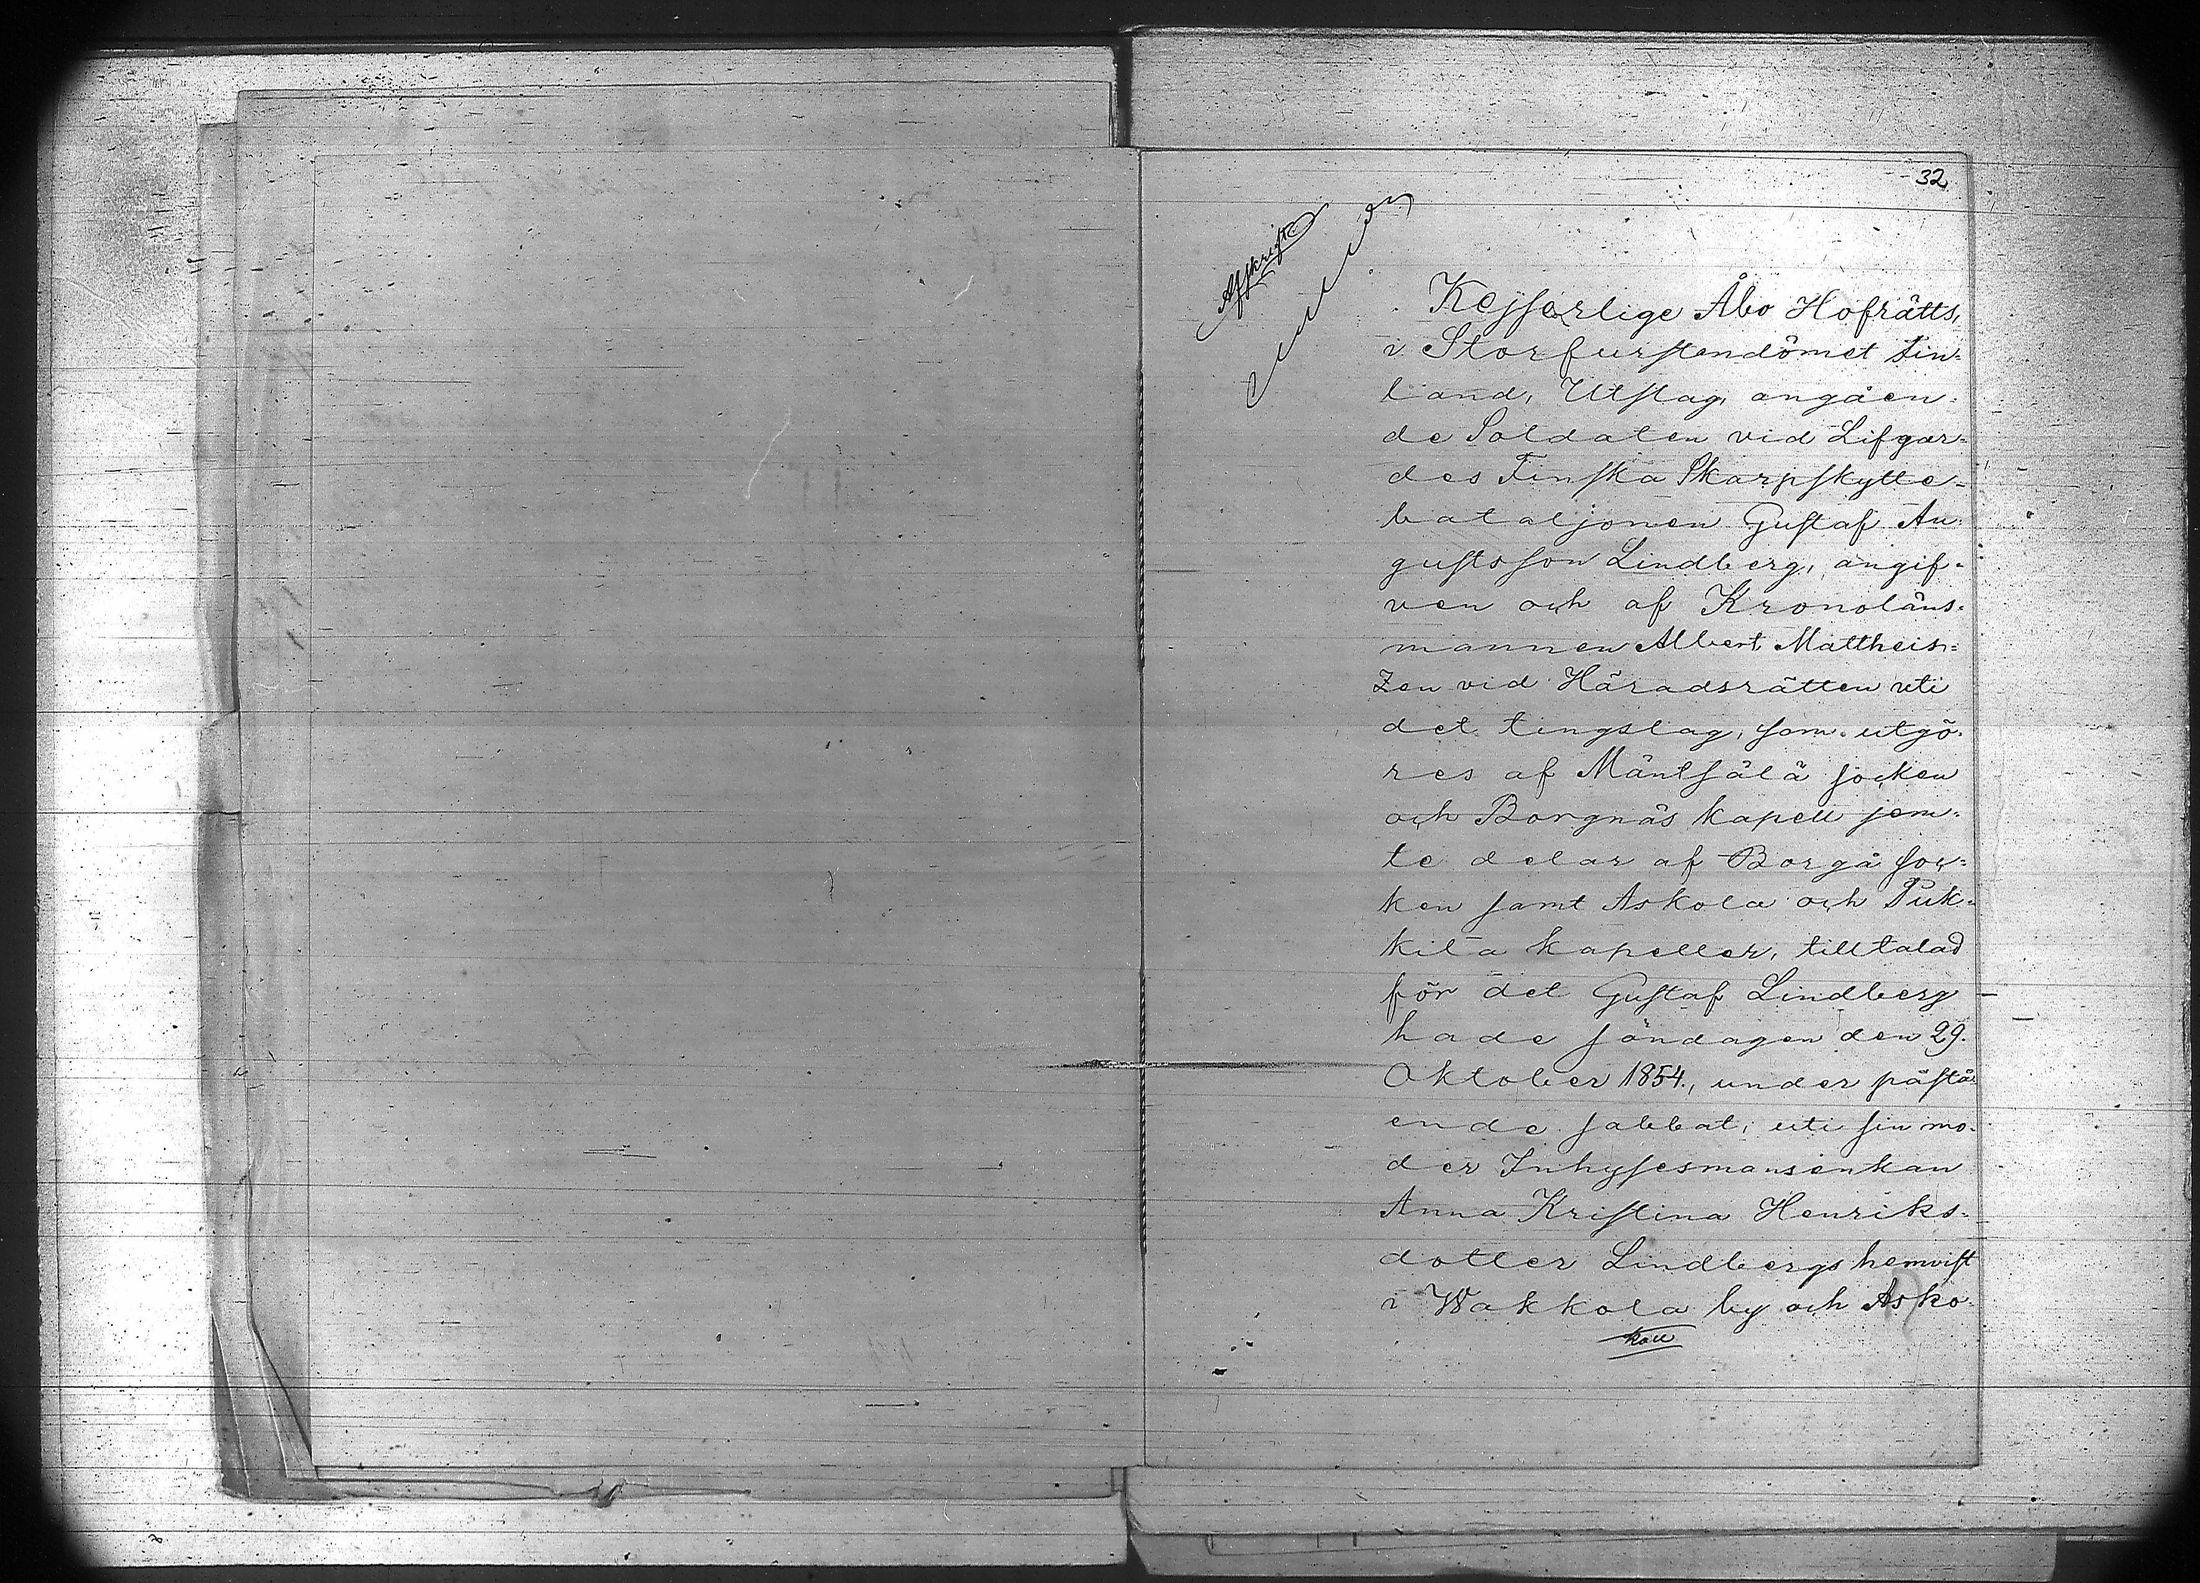 32
Afskrift
Kejserlige Åbo Hofrätts,
i Storfurstendömet Fin-
land, Utslag, angåen-
de Soldaten vid Lifgar-
des Finska Skarpskytte-
bataljonen Gustaf Au-
gustsson Lindberg, angif-
ven och af Kronoläns-
mannen Albert Mattheis-
zen vid Häradsrätten uti
det tingslag, som utgö-
res af Mäntsälä socken
och Borgnäs kapell jem-
te delar af Borgå soc-
ken samt Askola och Puk-
kila kapeller, tilltalad
för det Gustaf Lindberg
hade söndagen den 29.
Oktober 1854., under påstå-
ende sabbat, uti sin mo-
der Inhysesmansenkan
Anna Kristina Henriks-
dotter Lindbergs hemvist
i Wakkola by och Asko-